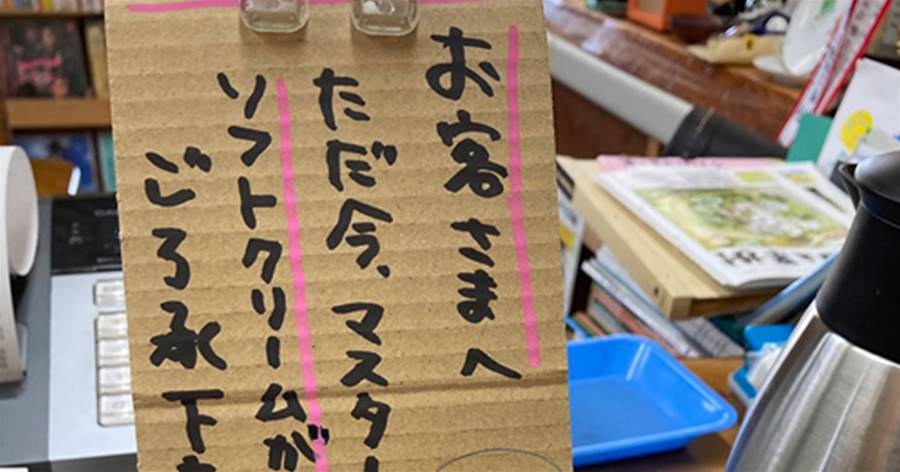 お客さまへ
ただ今、マスター
ソフトクリームが
ごろ承下